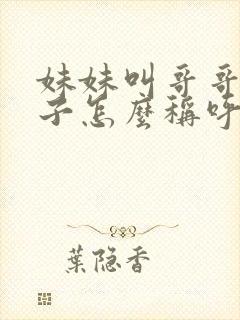 妹妹叫哥哥
子怎麼稱呼
葉隐香